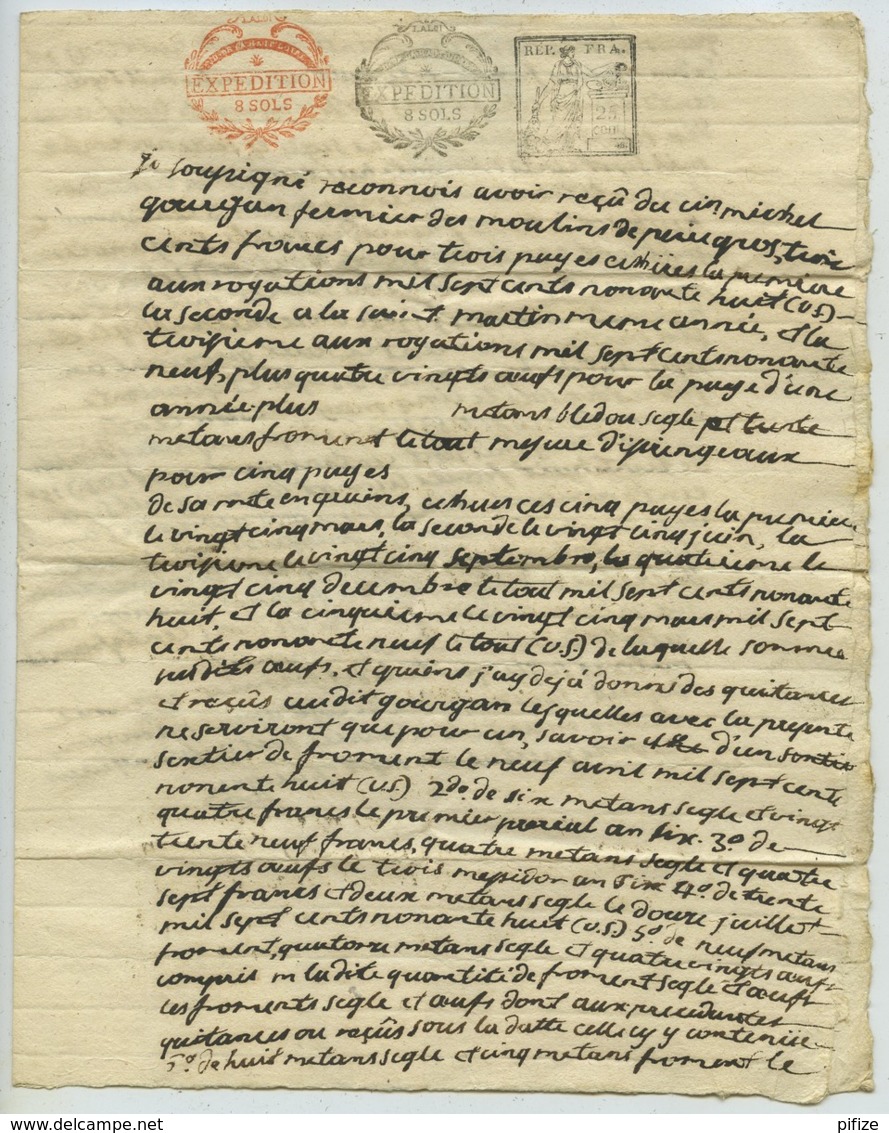 LA LOI
EXPEDITION
8 SOLS
LA LOI
EXPEDITION
8 SOLS
REP. FRA.
25
cent
je soussigné reconnois avoir reçû du cin. michel
gourgan fermier des moulins de trois
cents francs pour trois payes echües la premiere
aux rogations mil sept cents nonante huit (v.s.)
la seconde a la saint martin meme année, et la
troisieme aux rogations mil sept cents nonante
neuf, plus quatre vingts œufs pour la paye d'une
année plus metans bled ou segle et trente
metans froment le tout mesure d'issingeaux
pour cinq payes
de sa rente en grains, echues ces cinq payes la premiere
le vingt cinq mars, la seconde le vingt cinq juin, la
troisieme le vingt cinq septembre, la quatrieme le
vingt cinq decembre le tout mil sept cents nonante
huit, et la cinquieme le vingt cinq mars mil sept
cents nonante neuf le tout (v.s) de laquelle somme
susdites œufs, et grains j'ay deja donné des quitances
et reçûs audit gourgan lesquelles avec la presente
ne serviront que pour un, savoir d'un sentier
sentier de froment le neuf avril mil sept cents
nonente huit (v.s) 2do. de six metans segle et vingt
quatre francs le premier prerial an six. 3o. de
trente neuf francs, quatre metans segle et quatre
vingts œufs le trois messidor an six 4o. de trente
sept francs et deux metans segle le douze juillet
mil sept cents nonante huit (v.s) 5o. de neuf metans
froment, quatorze metans segle et quatre vingts œufs
compris en la dite quantité de froment segle et œufs
les froments segle et œufs dont aux precedentes
quitances ou reçûs sous la datte celle cy y contenüe
5o. de huit metans segle et cinq metans froment le